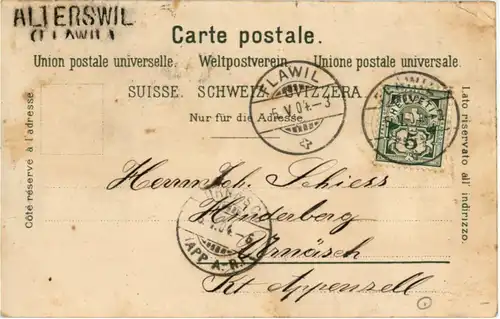 ALTERSWIL
(FLAWIL)
Carte postale.
Union postale universelle. Weltpostverein. Unione postale universale.
SUISSE. SCHWEIZ. SVIZZERA.
Nur für die Adresse.
Côté réservé à l'adresse.
Lato riservato all' indirizzo.
FLAWIL
5.V.04.-3
HELVETIA
5
Herrn Joh. Schiess
Hinderberg
Urnäsch
Kt Appenzell
URNÄSCH
V.04.-6
(APP. A. RH.)